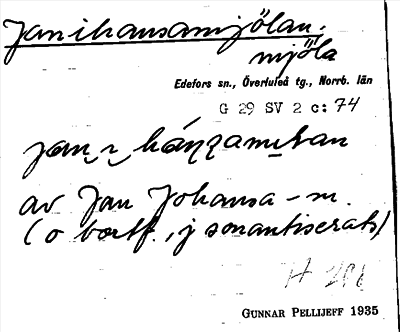 Janihansamjölan.
mjöla
Edefors sn., Överluleå tg., Norrb. län
G 29 SV 2 c: 74
av Jan Johansa-m.
(o bortf., j sonantiserats)
H 
GUNNAR PELLIJEFF 1935